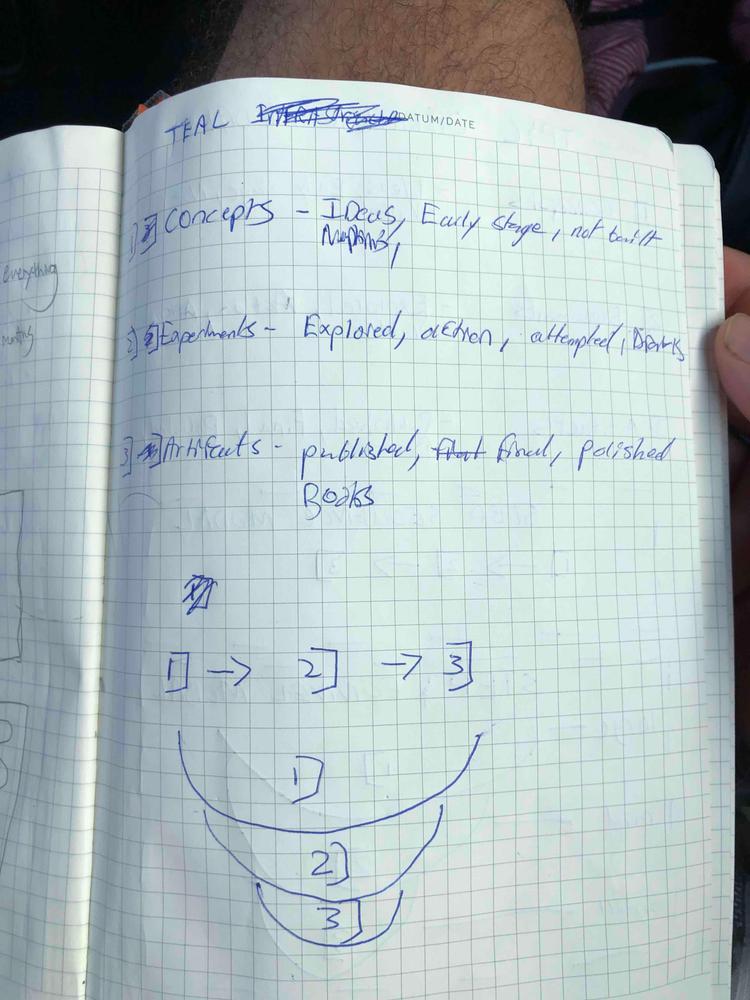 TEAL DATUM/DATE
1] Concepts - IDeas, Early stage, not built
2] Experiments - Explored, action, attempted, Drafts
3] Artifacts - published, final, polished
Books
1] -> 2] -> 3]
1]
2]
3]
everything
months